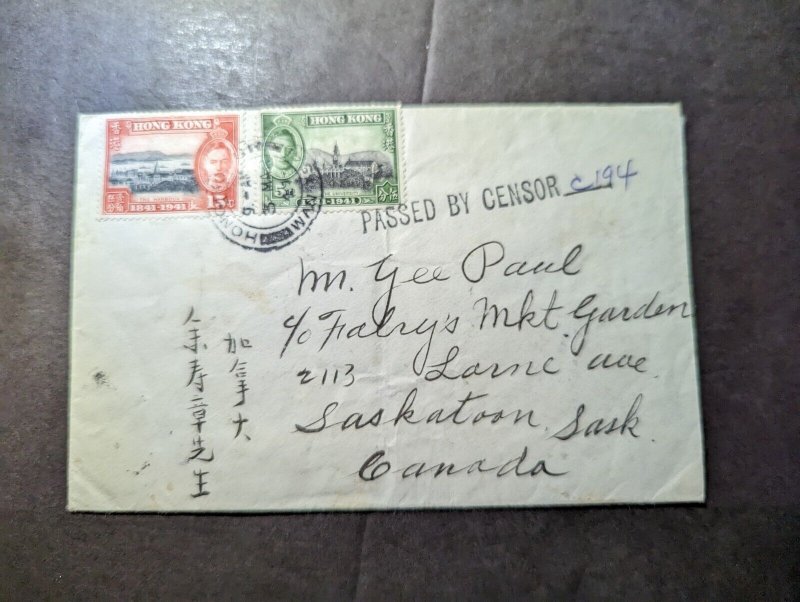 香港
HONG KONG
15c
1841-1941
HONG KONG
香港
5c
1841-1941
PASSED BY CENSOR C194
Mr. Gee Paul
c/o Falry's Mkt. Garden
2113 Lorne ave
Saskatoon, Sask.
Canada
加拿大
余寿章先生